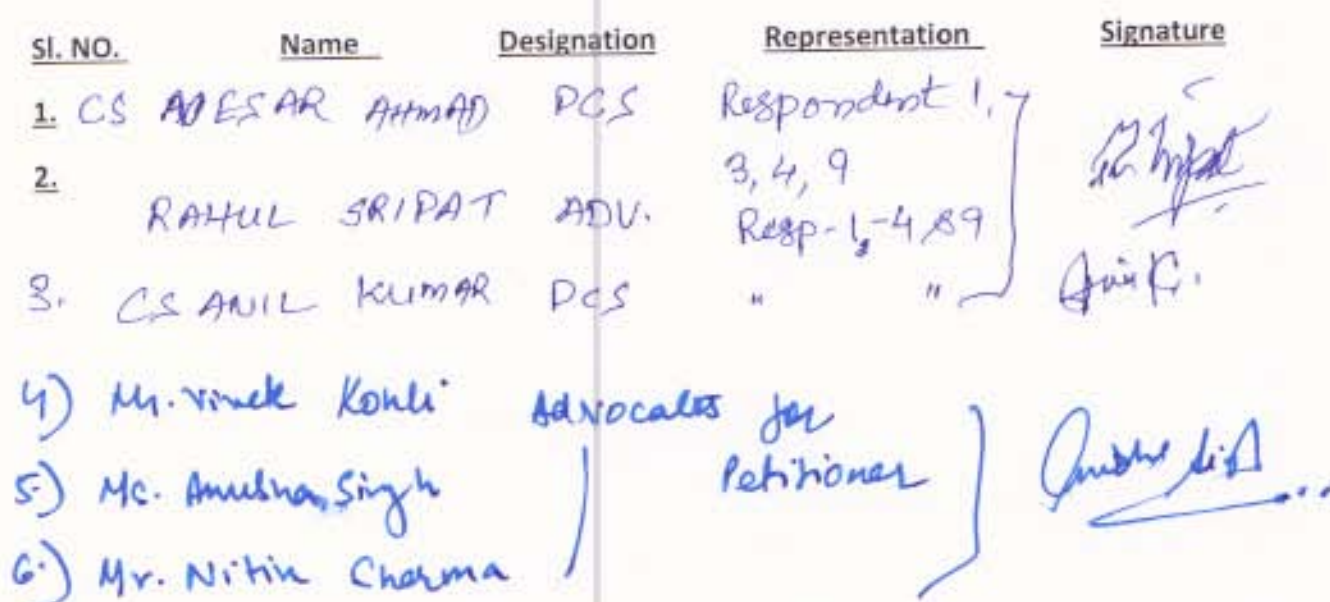 Sl. NO. Name Designation Representation Signature
1. CS AHMAD PCS Respondent 1,
3, 4, 9
2. RAHUL SRIPAT ADV. Resp-1,-4 &9
3. CS ANIL KUMAR PCS " "
4) Mr. Vivek Kohli Advocates for
5) Ms. Anubha Singh Petitioner
6.) Mr. Nitin Sharma